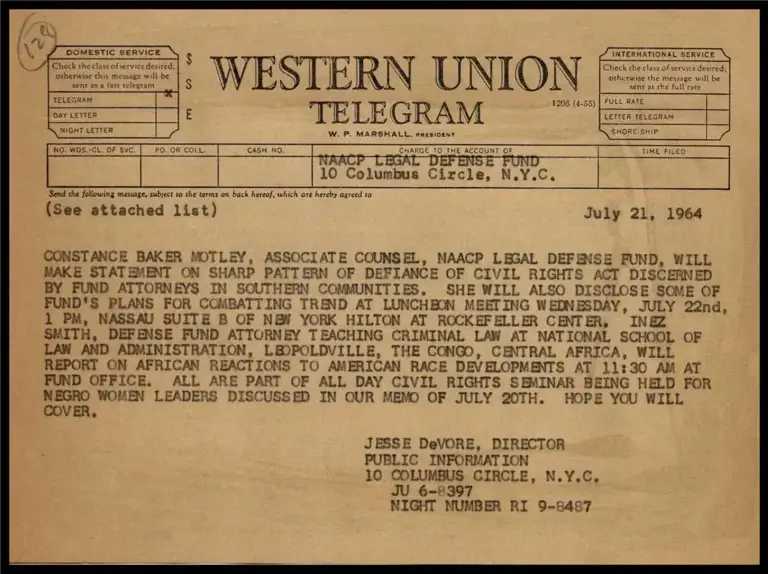 129
DOMESTIC SERVICE
Check the class of service desired;
otherwise this message will be
sent as a fast telegram
TELEGRAM x
DAY LETTER
NIGHT LETTER
$
S
E
WESTERN UNION
TELEGRAM
1206 (4-55)
W. P. MARSHALL, PRESIDENT
INTERNATIONAL SERVICE
Check the class of service desired;
otherwise the message will be
sent at the full rate
FULL RATE
LETTER TELEGRAM
SHORE-SHIP
NO. WDS.-CL. OF SVC. PD. OR COLL. CASH NO. CHARGE TO THE ACCOUNT OF TIME FILED
NAACP LEGAL DEFENSE FUND
10 Columbus Circle, N.Y.C.
Send the following message, subject to the terms on back hereof, which are hereby agreed to
(See attached list) July 21, 1964
CONSTANCE BAKER MOTLEY, ASSOCIATE COUNSEL, NAACP LEGAL DEFENSE FUND, WILL
MAKE STATEMENT ON SHARP PATTERN OF DEFIANCE OF CIVIL RIGHTS ACT DISCERNED
BY FUND ATTORNEYS IN SOUTHERN COMMUNITIES. SHE WILL ALSO DISCLOSE SOME OF
FUND'S PLANS FOR COMBATTING TREND AT LUNCHEON MEETING WEDNESDAY, JULY 22nd,
1 PM, NASSAU SUITE B OF NEW YORK HILTON AT ROCKEFELLER CENTER. INEZ
SMITH, DEFENSE FUND ATTORNEY TEACHING CRIMINAL LAW AT NATIONAL SCHOOL OF
LAW AND ADMINISTRATION, LEOPOLDVILLE, THE CONGO, CENTRAL AFRICA, WILL
REPORT ON AFRICAN REACTIONS TO AMERICAN RACE DEVELOPMENTS AT 11:30 AM AT
FUND OFFICE. ALL ARE PART OF ALL DAY CIVIL RIGHTS SEMINAR BEING HELD FOR
NEGRO WOMEN LEADERS DISCUSSED IN OUR MEMO OF JULY 20TH. HOPE YOU WILL
COVER.
JESSE DeVORE, DIRECTOR
PUBLIC INFORMATION
10 COLUMBUS CIRCLE, N.Y.C.
JU 6-8397
NIGHT NUMBER RI 9-8487